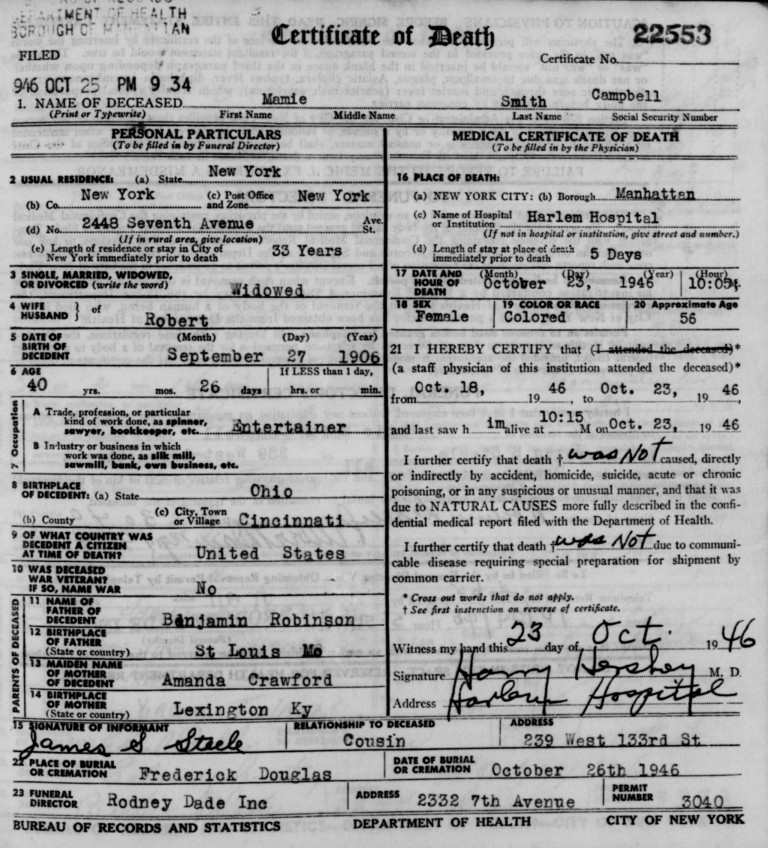 DEPARTMENT OF HEALTH
BOROUGH OF MANHATTAN
Certificate of Death
22553
FILED
Certificate No.
946 OCT 25 PM 9 34
1. NAME OF DECEASED Mamie Smith Campbell
(Print or Typewrite) First Name Middle Name Last Name Social Security Number
PERSONAL PARTICULARS
(To be filled in by Funeral Director)
2 USUAL RESIDENCE: (a) State New York
(b) Co. New York (c) Post Office and Zone New York
(d) No. 2448 Seventh Avenue Ave. St.
(If in rural area, give location)
(e) Length of residence or stay in City of
New York immediately prior to death 33 Years
3 SINGLE, MARRIED, WIDOWED,
OR DIVORCED (write the word) Widowed
4 WIFE
HUSBAND } of Robert
5 DATE OF
BIRTH OF
DECEDENT (Month) (Day) (Year)
September 27 1906
6 AGE If LESS than 1 day,
40 yrs. mos. 26 days hrs. or min.
7 Occupation
A Trade, profession, or particular
kind of work done, as spinner,
sawyer, bookkeeper, etc. Entertainer
B Industry or business in which
work was done, as silk mill,
sawmill, bank, own business, etc.
8 BIRTHPLACE
OF DECEDENT: (a) State Ohio
(b) County (c) City, Town
or Village Cincinnati
9 OF WHAT COUNTRY WAS
DECEDENT A CITIZEN
AT TIME OF DEATH? United States
10 WAS DECEASED
WAR VETERAN?
IF SO, NAME WAR No
PARENTS OF DECEASED
11 NAME OF
FATHER OF
DECEDENT Benjamin Robinson
12 BIRTHPLACE
OF FATHER
(State or country) St Louis Mo
13 MAIDEN NAME
OF MOTHER
OF DECEDENT Amanda Crawford
14 BIRTHPLACE
OF MOTHER
(State or country) Lexington Ky
MEDICAL CERTIFICATE OF DEATH
(To be filled in by the Physician)
16 PLACE OF DEATH:
(a) NEW YORK CITY: (b) Borough Manhattan
(c) Name of Hospital
or Institution Harlem Hospital
(If not in hospital or institution, give street and number.)
(d) Length of stay at place of death
immediately prior to death 5 Days
17 DATE AND
HOUR OF
DEATH (Month) (Day) (Year) (Hour)
October 23, 1946 10:05
18 SEX Female 19 COLOR OR RACE Colored 20 Approximate Age 56
21 I HEREBY CERTIFY that (I attended the deceased)*
(a staff physician of this institution attended the deceased)*
from Oct. 18, 19 46 to Oct. 23, 19 46
and last saw h im alive at 10:15 M on Oct. 23, 19 46
I further certify that death † was Not caused, directly
or indirectly by accident, homicide, suicide, acute or chronic
poisoning, or in any suspicious or unusual manner, and that it was
due to NATURAL CAUSES more fully described in the confi-
dential medical report filed with the Department of Health.
I further certify that death † was Not due to communi-
cable disease requiring special preparation for shipment by
common carrier.
* Cross out words that do not apply.
† See first instruction on reverse of certificate.
Witness my hand this 23 day of Oct. 19 46
Signature Harry Hershey M. D.
Address Harlem Hospital
15 SIGNATURE OF INFORMANT RELATIONSHIP TO DECEASED ADDRESS
James S Steele Cousin 239 West 133rd St
22 PLACE OF BURIAL
OR CREMATION Frederick Douglas DATE OF BURIAL
OR CREMATION October 26th 1946
23 FUNERAL
DIRECTOR Rodney Dade Inc ADDRESS 2332 7th Avenue PERMIT
NUMBER 3040
BUREAU OF RECORDS AND STATISTICS DEPARTMENT OF HEALTH CITY OF NEW YORK